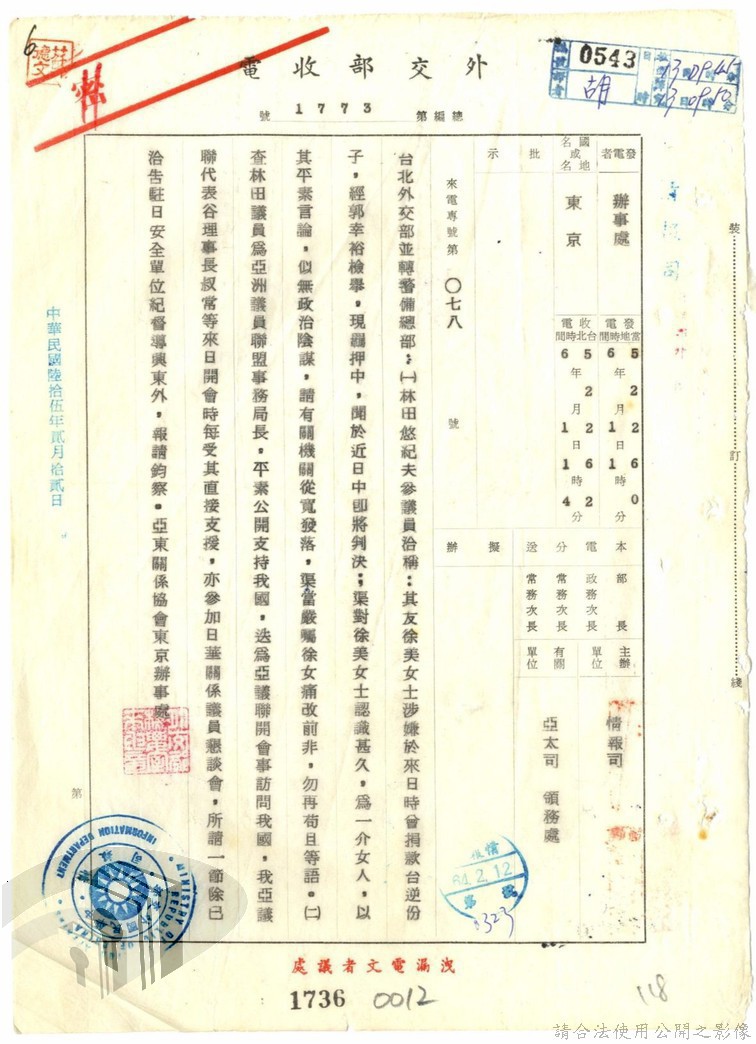 外交部收電
總編第 1773 號
0543
胡
密
發電者 辦事處
國名或地名 東京
批示
發電當地時間 65年2月12日16時0分
收電台北時間 65年2月12日16時42分
本電分送
部長
政務次長
常務次長
常務次長
主辦單位 情報司
有關單位 亞太司 領務處
擬辦
來電專號第 〇七八 號
台北外交部並轉警備總部:㈠林田悠紀夫參議員洽稱:其友徐美女士涉嫌於來日時曾捐款台逆份
子,經郭幸裕檢舉,現羈押中,聞於近日中即將判決;渠對徐美女士認識甚久,爲一介女人,以
其平素言論,似無政治陰謀,請有關機關從寬發落,渠當嚴囑徐女痛改前非,勿再苟且等語。㈡
查林田議員爲亞洲議員聯盟事務局長,平素公開支持我國,迭爲亞議聯開會事訪問我國,我亞議
聯代表谷理事長叔常等來日開會時每受其直接支援,亦參加日華關係議員懇談會,所請一節除已
洽告駐日安全單位紀督導興東外,報請鈞察。亞東關係協會東京辦事處
中華民國陸拾伍年貳月拾貳日
第
裝
訂
綫
64.2.12
0323
MINISTRY
REPUBLIC
INFORMATION DEPARTMENT
洩漏電文者議處
1736
0012
118
請合法使用公開之影像